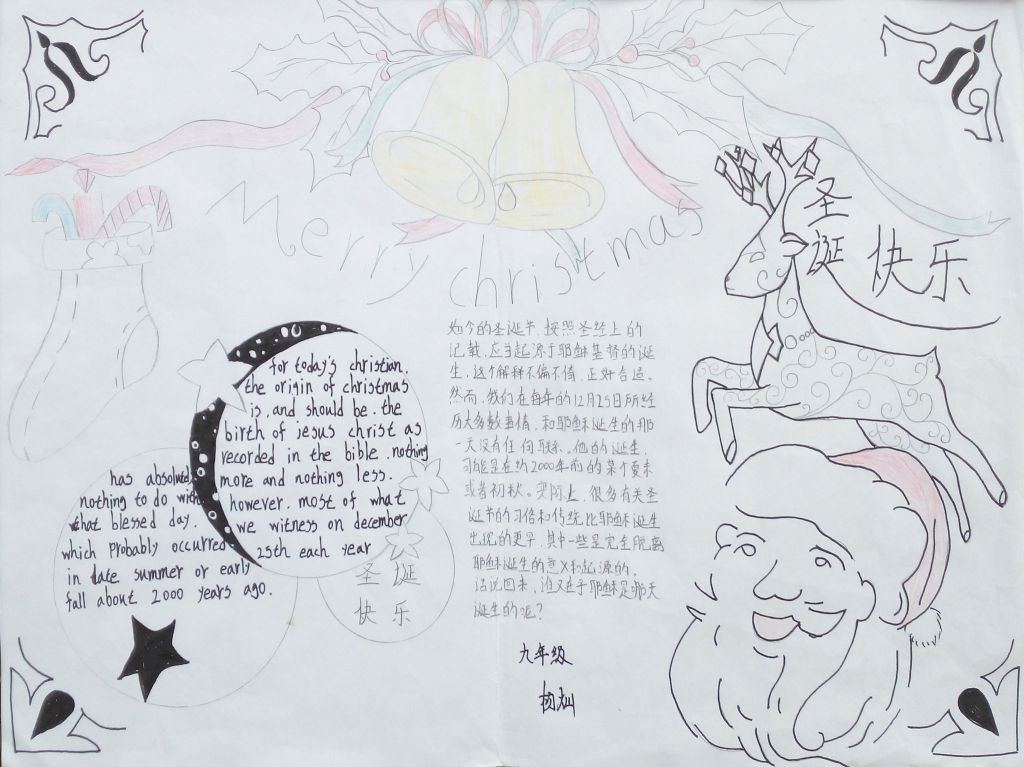 Merry christmas
圣
诞 快乐
for today's christian.
the origin of christmas
is, and should be. the
birth of jesus christ as
recorded in the bible. nothing
more and nothing less.
however. most of what
we witness on december
25th each year
has absolutely
nothing to do with
that blessed day.
which probably occurred
in late summer or early
fall about 2000 years ago.
圣诞
快乐
如今的圣诞节,按照圣经上的
记载,应当起源于耶稣基督的诞
生,这个解释不偏不倚,正好合适。
然而,我们在每年的12月25日所经
历大多数事情,和耶稣诞生的那
一天没有任何联系。他的诞生,
可能是在约2000年前的某个夏末
或者初秋。实际上,很多有关圣
诞节的习俗和传统比耶稣诞生
出现的更早,其中一些是完全脱离
耶稣诞生的意义和起源的。
话说回来,谁又在乎耶稣是哪天
诞生的呢?
九年级
杨灿